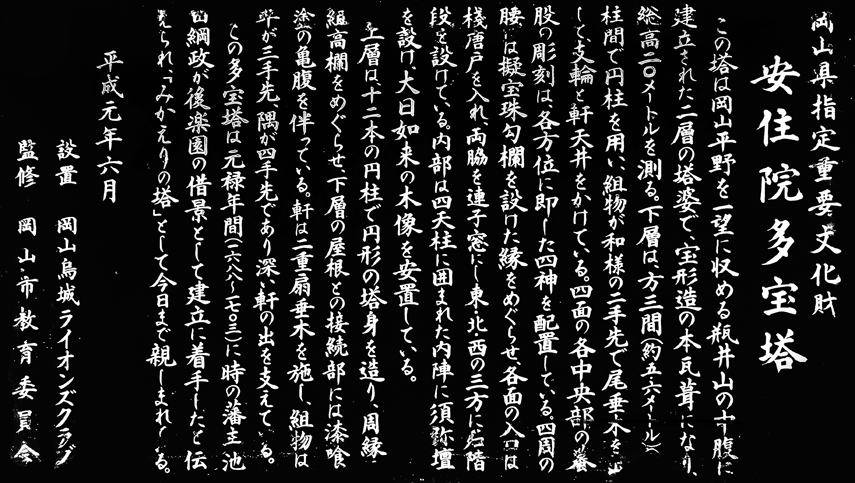 岡山県指定重要文化財
安住院多宝塔
この塔は岡山平野を一望に収める瓶井山の中腹に
建立された二層の塔婆で、宝形造の本瓦葺になり、
総高二〇メートルを測る。下層は方三間(約五・六メートル)
柱間で円柱を用い、組物が和様の二手先で尾垂木を出
して支輪と軒天井をかけている。四面の各中央部の蟇
股の彫刻は各方位に即した四神を配置している。四周の
腰には擬宝珠勾欄を設けた縁をめぐらせ、各面の入口は
棧唐戸を入れ、両脇を連子窓にし東・北・西の三方に岩階
段を設けている。内部は四天柱に囲まれた内陣に須弥壇
を設け、大日如来の木像を安置している。
上層は十二本の円柱で円形の塔身を造り、周縁
組高欄をめぐらせ、下層の屋根との接続部には漆喰
塗の亀腹を伴っている。軒は二重扇垂木を施し、組物は
平が三手先、隅が四手先であり深い軒の出を支えている。
この多宝塔は元禄年間(一六八八〜一七〇三)に時の藩主池
田綱政が後楽園の借景として建立に着手したと伝
えられ「みかえりの塔」として今日まで親しまれている。
平成元年六月
設置 岡山烏城ライオンズクラブ
監修 岡山市教育委員会